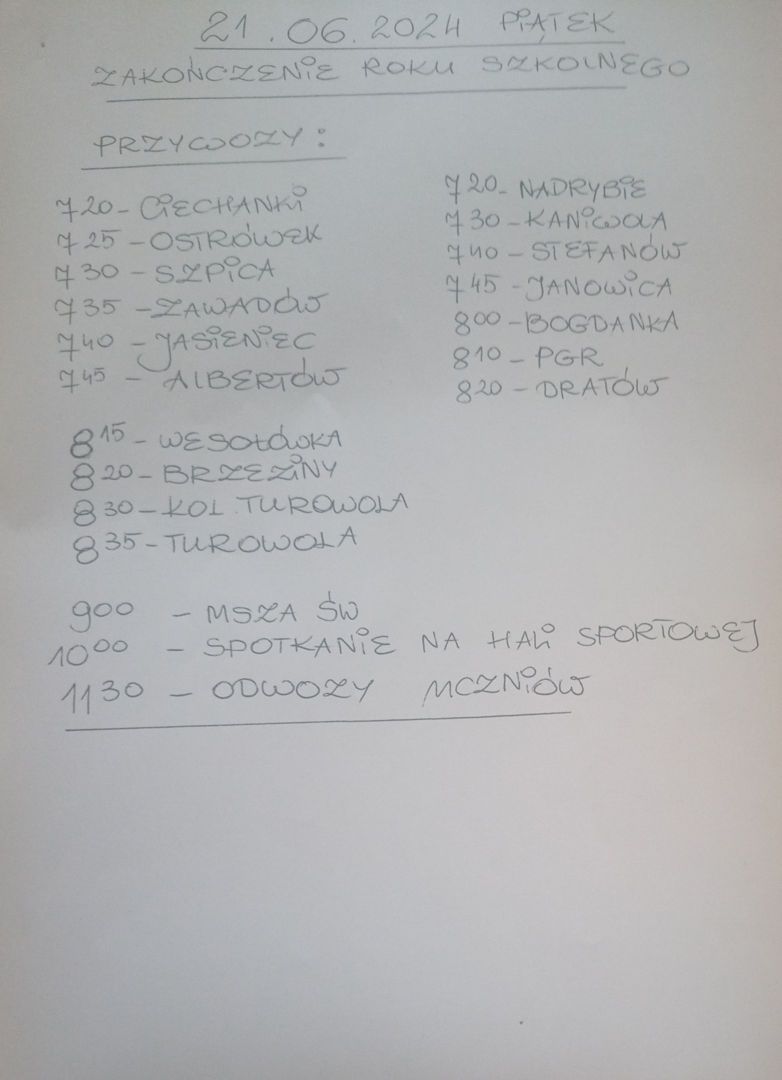 21.06.2024 PIĄTEK
ZAKOŃCZENIE ROKU SZKOLNEGO
PRZYWOZY:
7 20 - CIECHANKI
7 25 - OSTRÓWEK
7 30 - SZPICA
7 35 - ZAWADÓW
7 40 - JASIENIEC
7 45 - ALBERTÓW
8 15 - WESOŁÓWKA
8 20 - BRZEZINY
8 30 - KOL. TUROWOLA
8 35 - TUROWOLA
7 20 - NADRYBIE
7 30 - KANIWOLA
7 40 - STEFANÓW
7 45 - JANOWICA
8 00 - BOGDANKA
8 10 - PGR
8 20 - DRATÓW
9 00 - MSZA ŚW
10 00 - SPOTKANIE NA HALI SPORTOWEJ
11 30 - ODWOZY UCZNIÓW